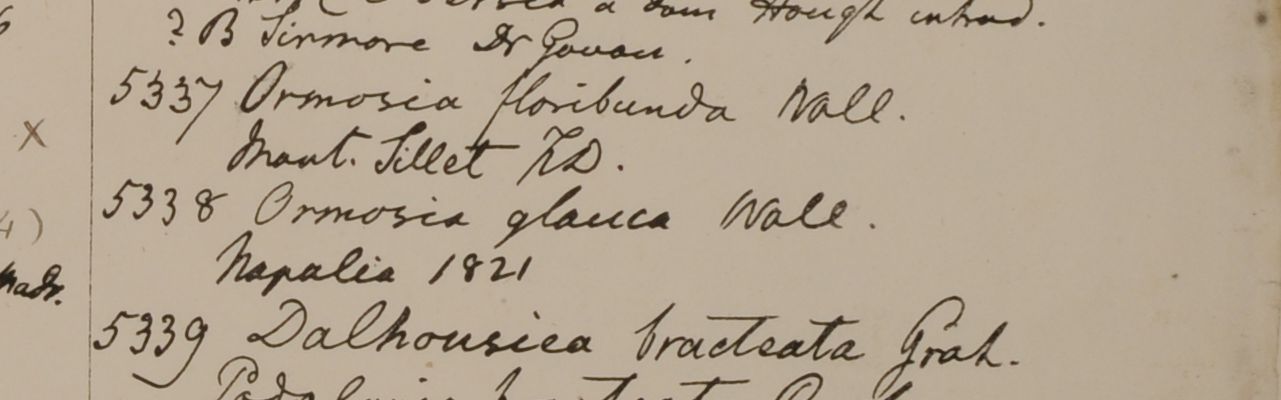 a dom Hough introd.
? B Sirmore Dr Govan.
5337 Ormosia floribunda Wall.
X
Mont. Sillet FD.
5338 Ormosia glauca Wall.
4)
Napalia 1821
Madr.
5339 Dalhousiea bracteata Grah.